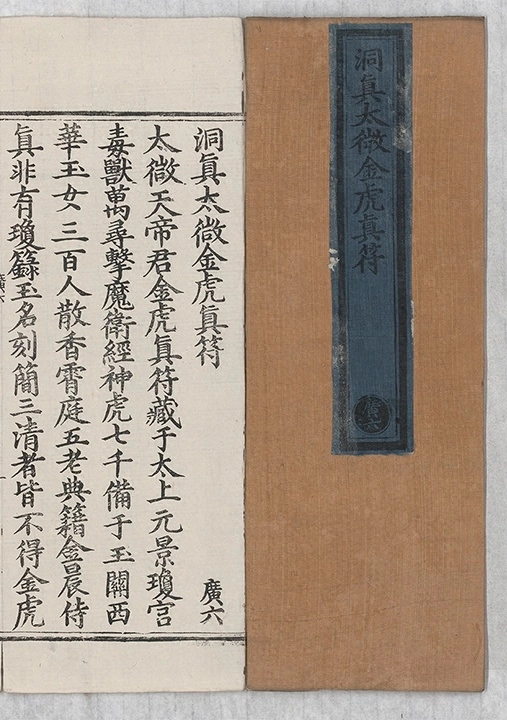 洞真太微金虎真符
廣六
洞真太微金虎真符
廣六
太微天帝君金虎真符藏于太上元景瓊宮
毒獸萬尋擊魔衛經神虎七千備于玉闕西
華玉女三百人散香霄庭五老典籍金晨侍
真非有瓊籙玉名刻簡三清者皆不得金虎
廣六